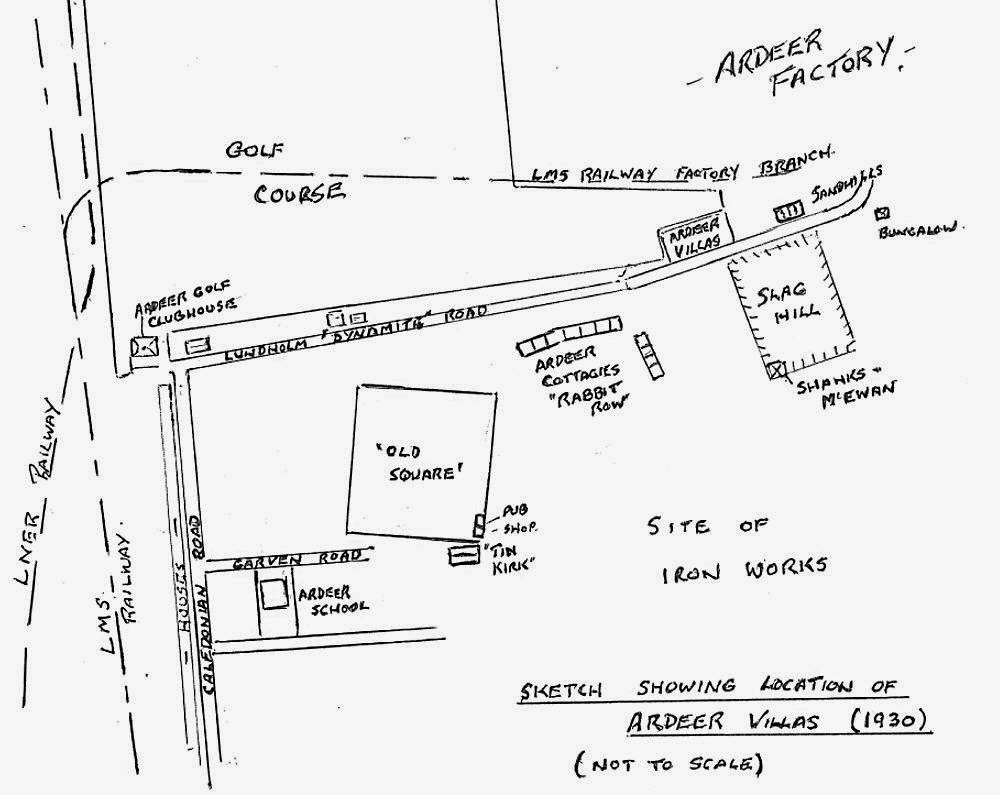 - ARDEER
FACTORY. -
GOLF
COURSE
LMS RAILWAY FACTORY BRANCH.
SANDHILLS
BUNGALOW.
ARDEER
VILLAS
SLAG
HILL
SHANKS +
McEWAN
ARDEER GOLF
CLUBHOUSE
LUNDHOLM "DYNAMITE" ROAD
ARDEER
COTTAGIES
"RABBIT
ROW"
"OLD
SQUARE"
PUB
SHOP.
"TIN
KIRK"
SITE OF
IRON WORKS
GARVEN ROAD
ARDEER
SCHOOL
LNER RAILWAY
LMS.
RAILWAY.
HOUSES
CALEDONIAN ROAD
SKETCH SHOWING LOCATION OF
ARDEER VILLAS (1930)
(NOT TO SCALE)